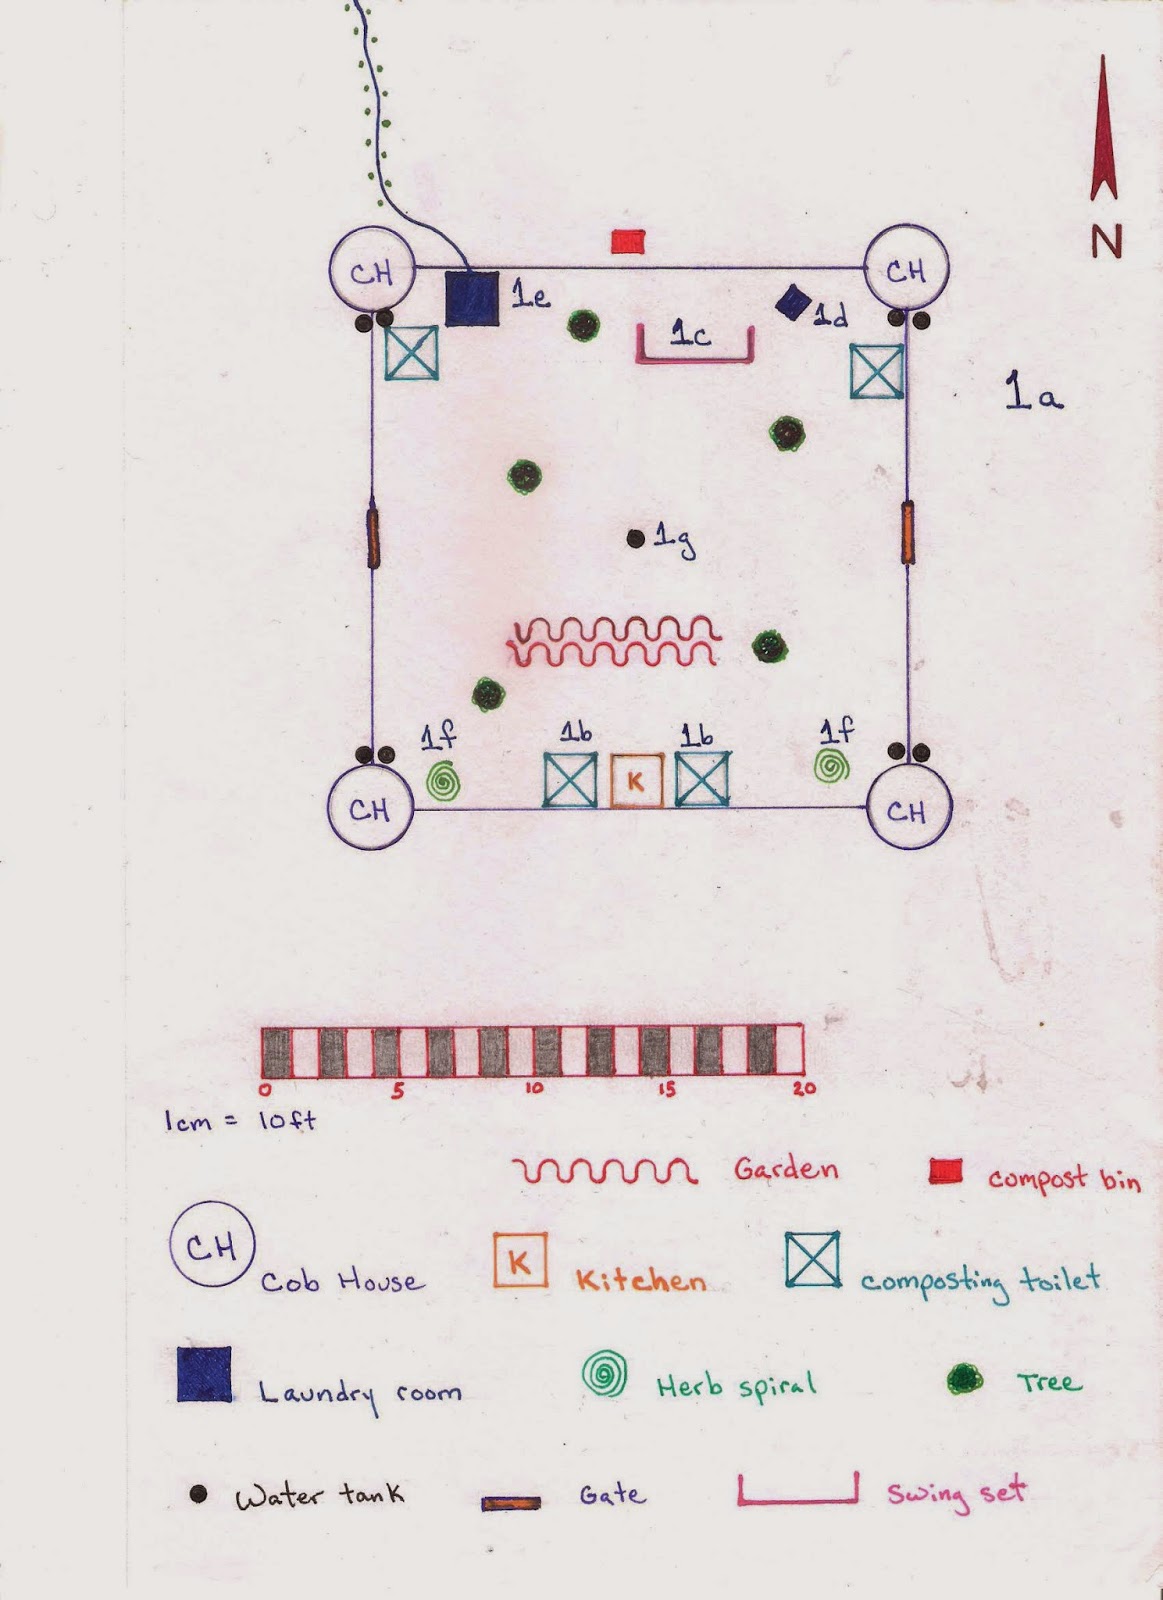 N
CH
CH
1e
1d
1c
1a
1g
1f
1b
1b
1f
K
CH
CH
0 5 10 15 20
1cm = 10ft
Garden
compost bin
CH
Cob House
K
Kitchen
composting toilet
Laundry room
Herb spiral
Tree
Water tank
Gate
Swing set